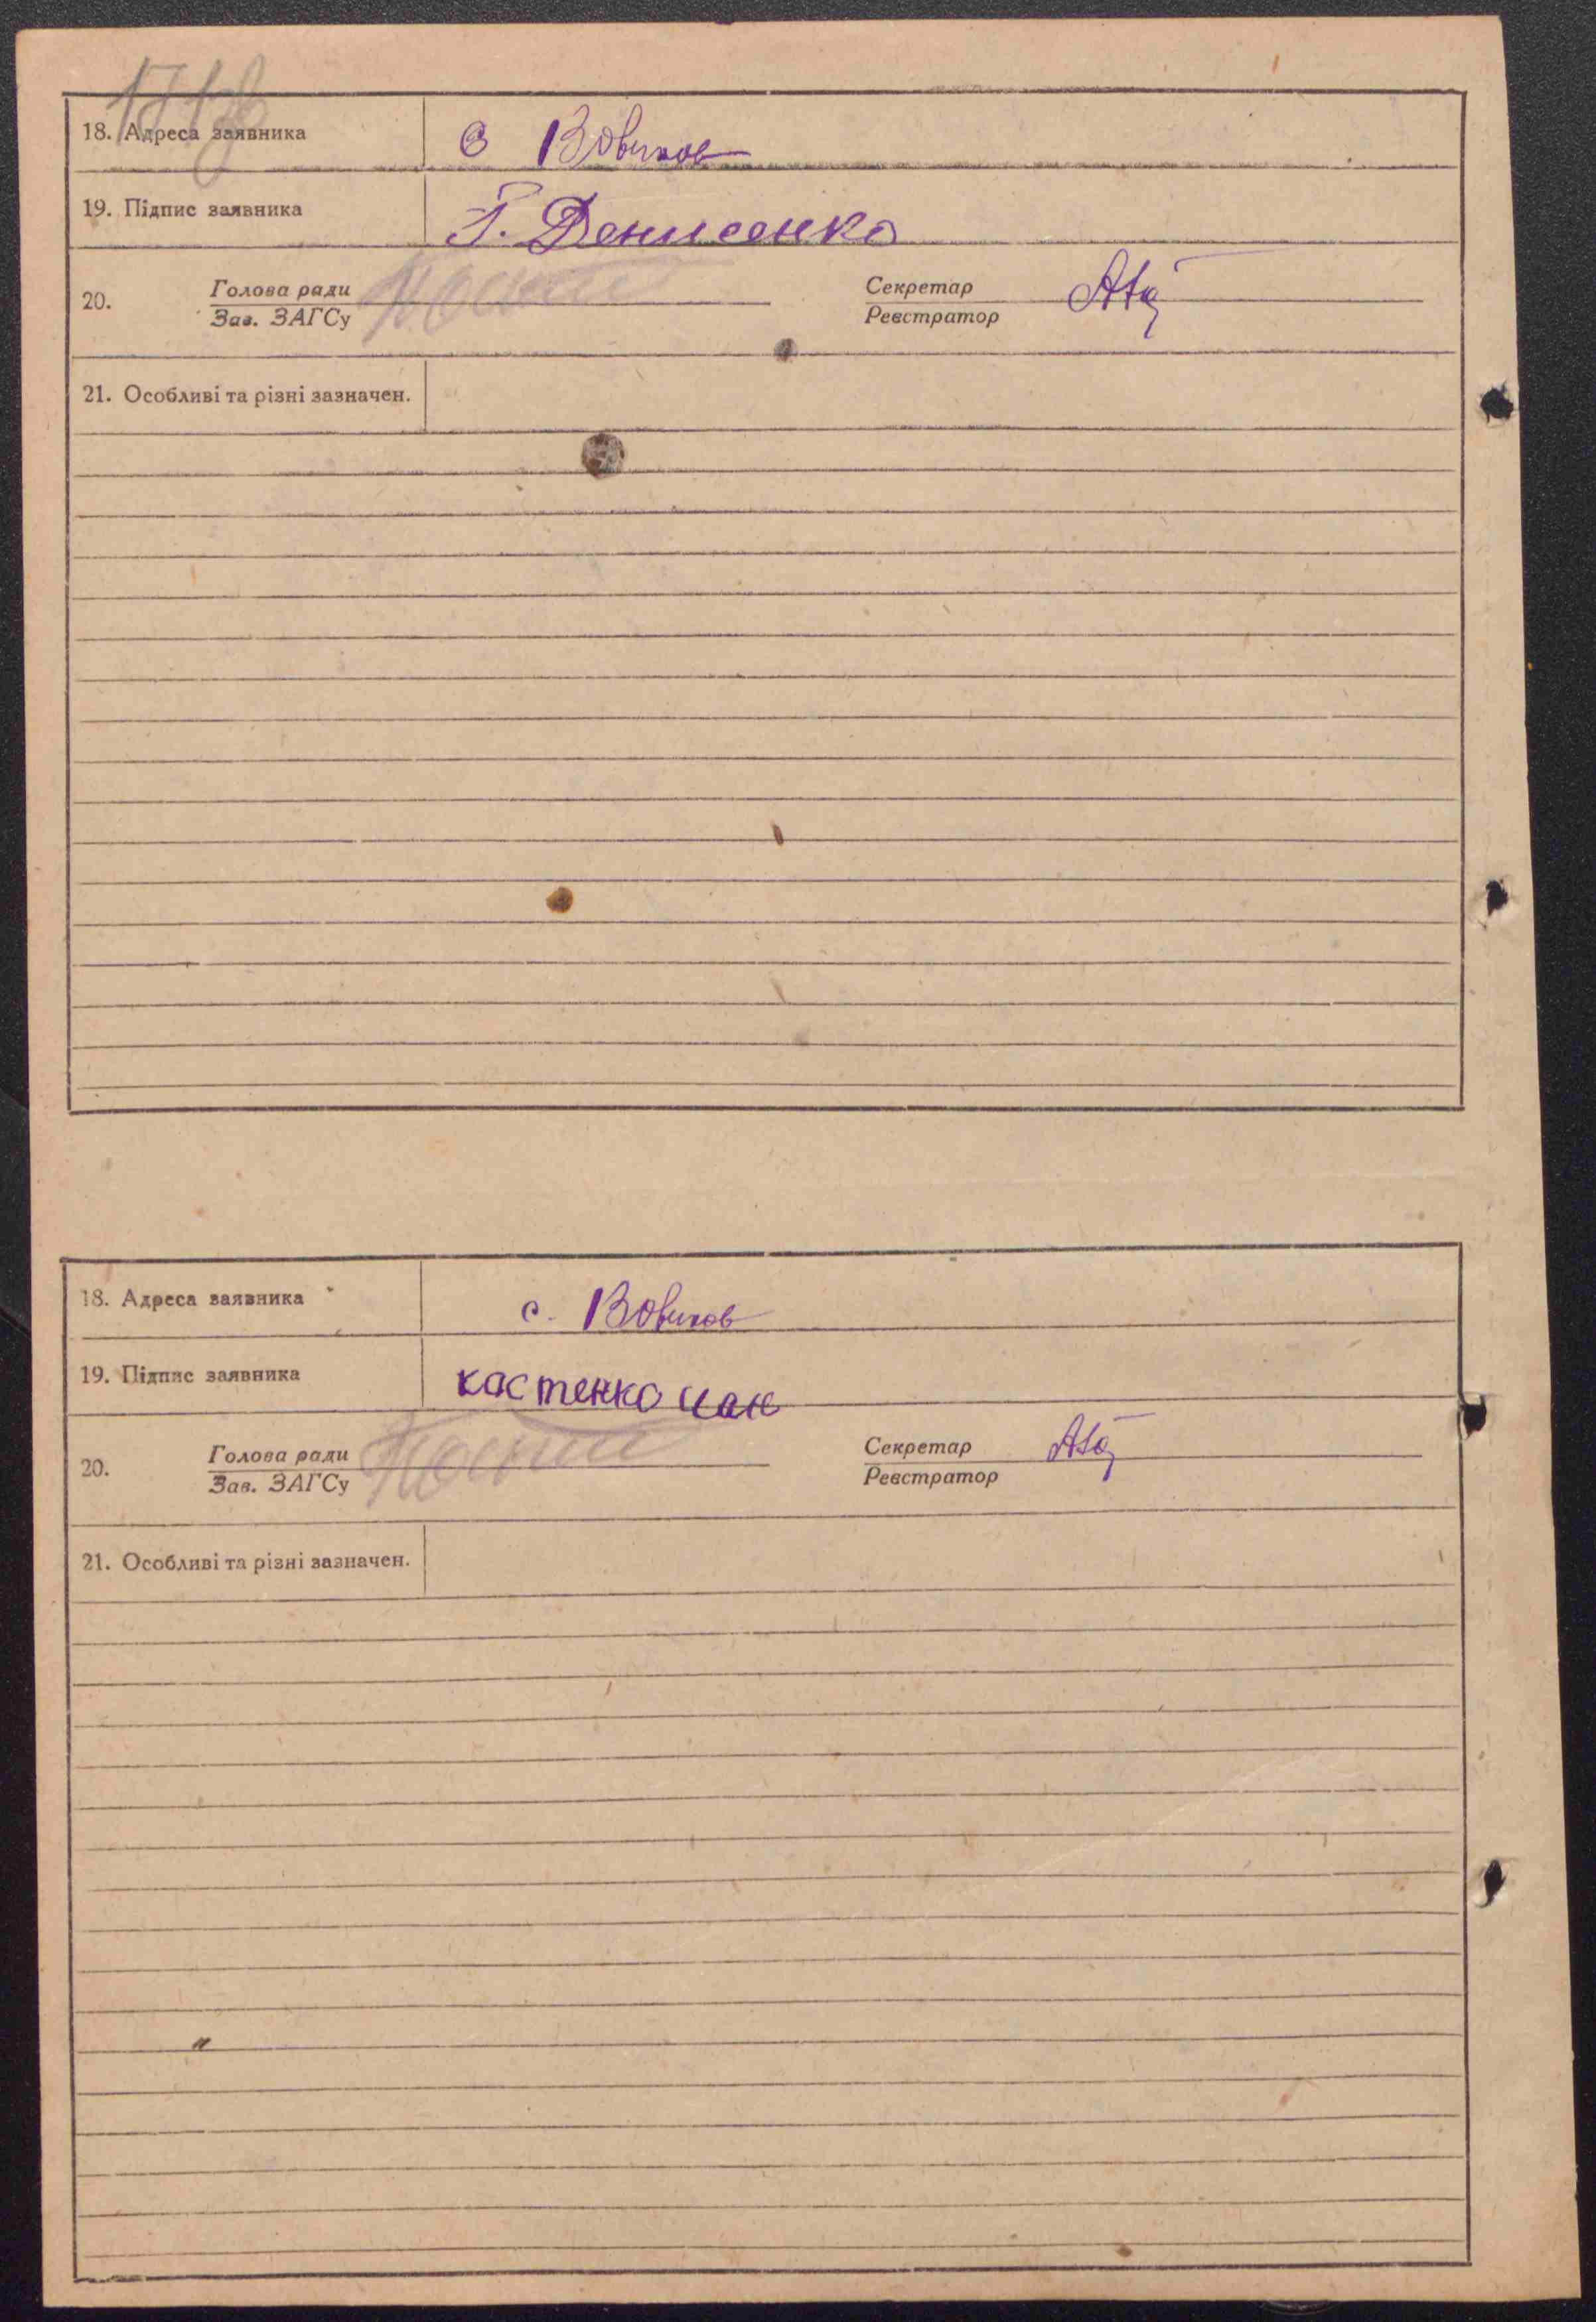 18. Адреса заявника с Вовчков
19. Підпис заявника Г. Денисенко
20. Голова ради Секретар
Зав. ЗАГСу Реєстратор
21. Особливі та різні зазначен.
18. Адреса заявника с. Вовчков
19. Підпис заявника костенко
20. Голова ради Секретар
Зав. ЗАГСу Реєстратор
21. Особливі та різні зазначен.